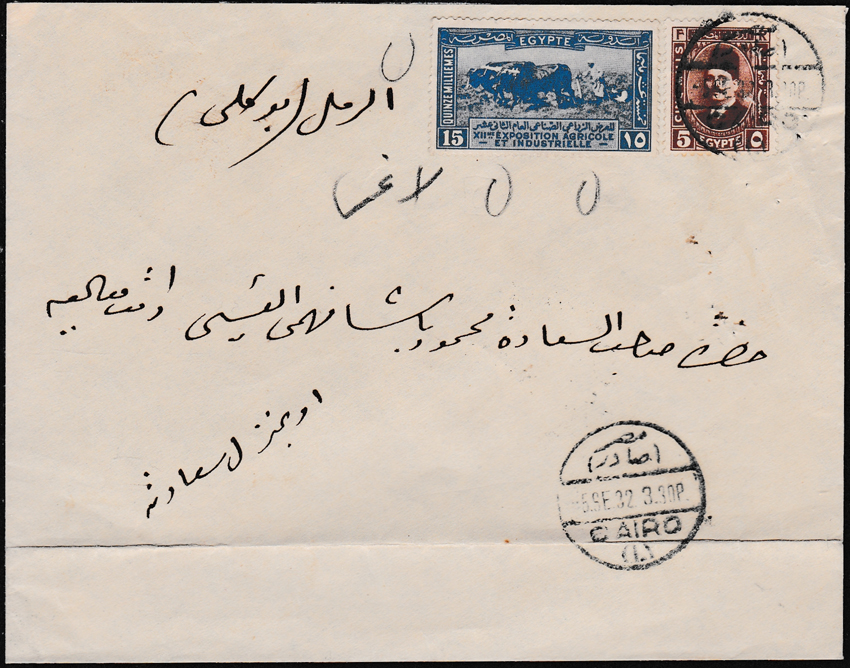 الدولة المصرية
EGYPTE
QUINZE MILLIEMES
المعرض الزراعي الصناعي العام الثاني عشر
XIIME EXPOSITION AGRICOLE
ET INDUSTRIELLE
15 ١٥
5 EGYPTE ٥
الرمل (بوكلى)
حضرة صاحب السعادة محمود باشا فهمى القيسى
او بمنزل سعادته
مصر
(صادر)
5.SE.32 3.30P.
CAIRO